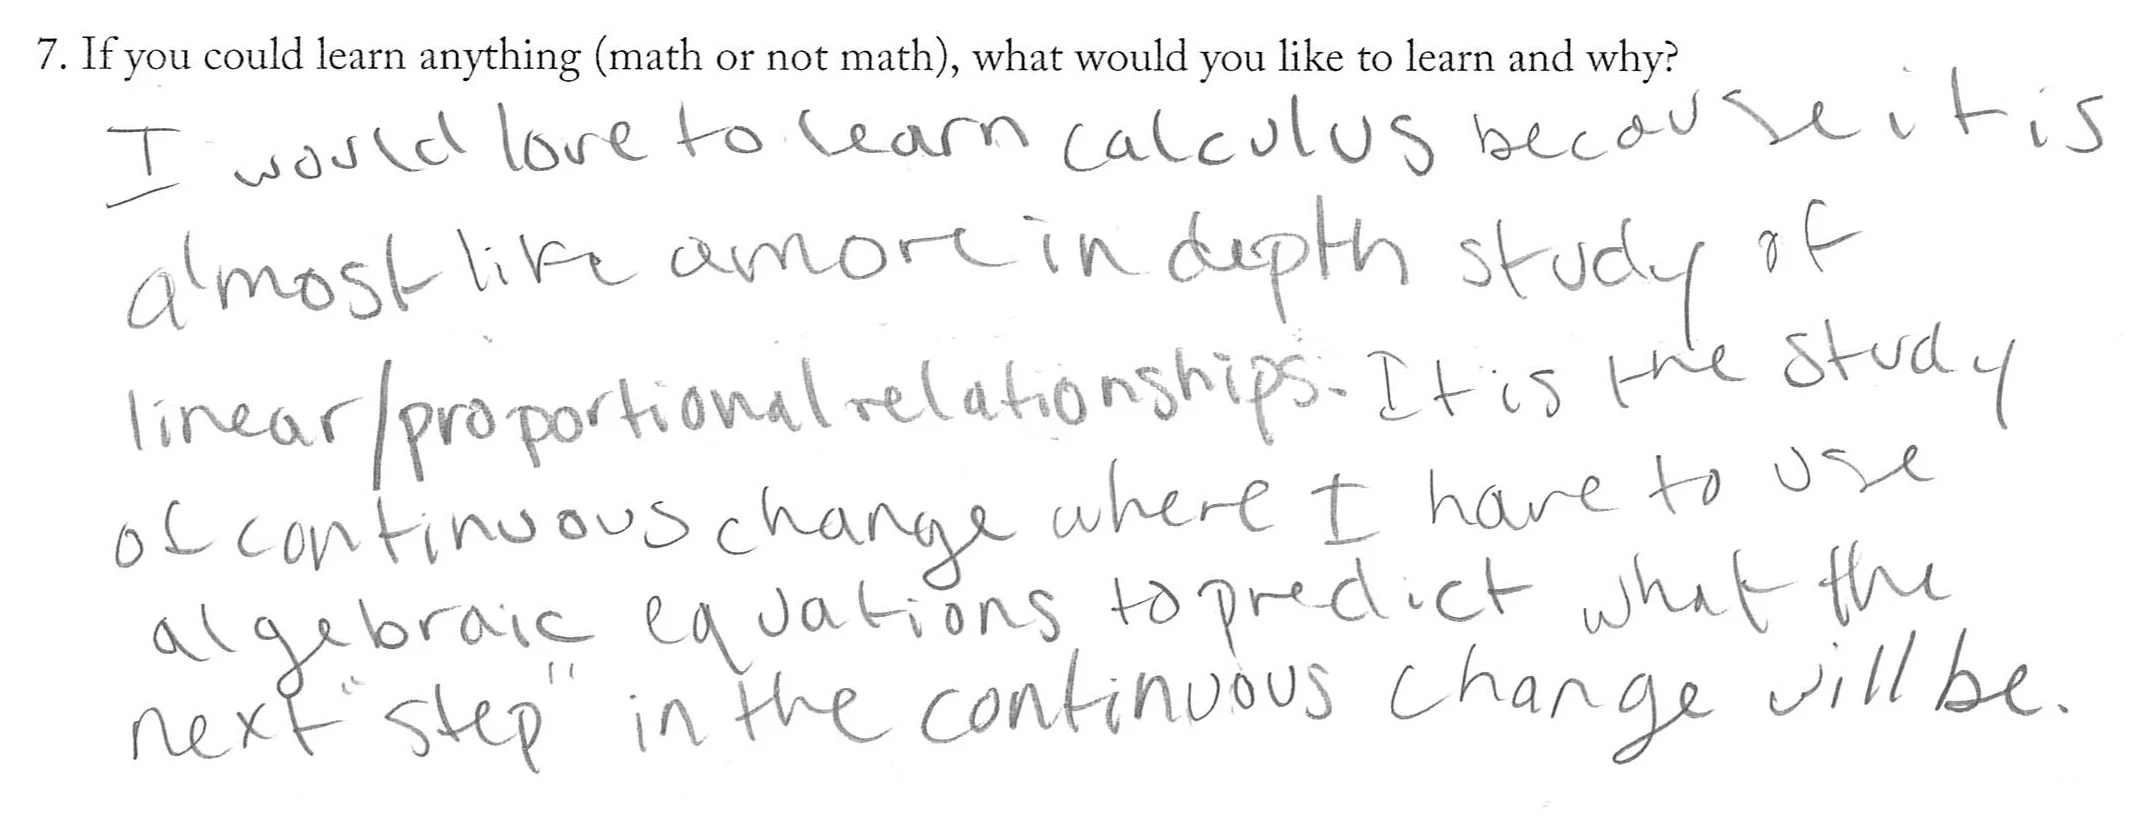 7. If you could learn anything (math or not math), what would you like to learn and why?
I would love to learn calculus because it is
almost like a more in depth study of
linear/proportional relationships. It is the study
of continuous change where I have to use
algebraic equations to predict what the
next "step" in the continuous change will be.